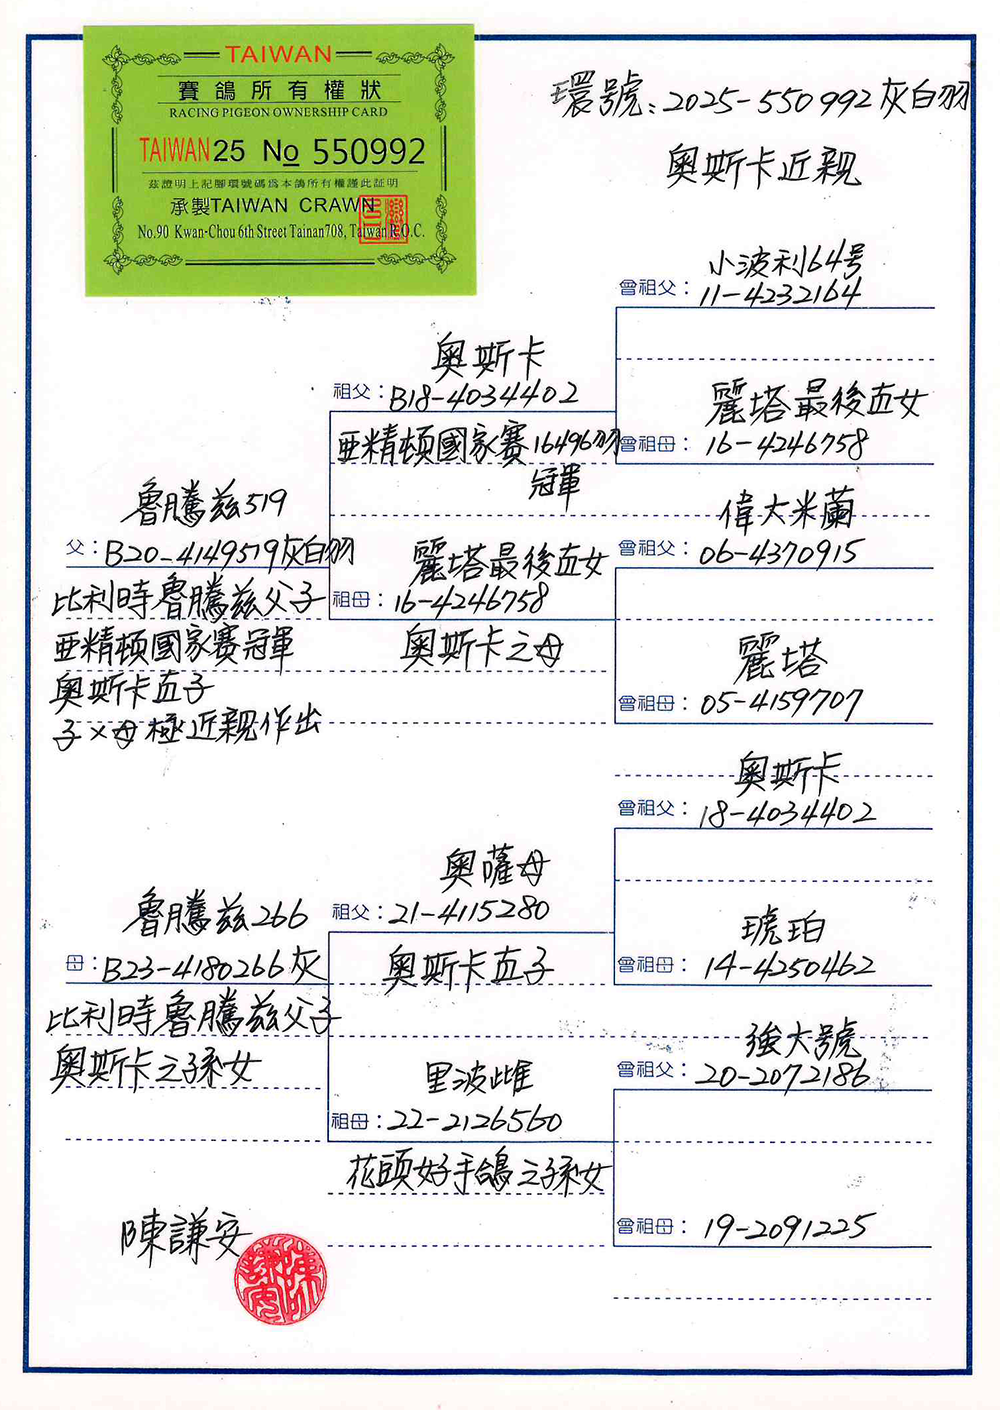 TAIWAN
賽鴿所有權狀
RACING PIGEON OWNERSHIP CARD
TAIWAN 25 No 550992
茲證明上記腳環號碼為本鴿所有權謹此証明
承製TAIWAN CRAWN
No.90 Kwan-Chou 6th Street Tainan708, Taiwan R.O.C.
環號：2025-550992灰白羽
奧斯卡近親
小波利64号
曾祖父：11-4232164
奧斯卡
祖父：B18-4034402
亞精頓國家賽16496羽
冠軍
麗塔最後直女
曾祖母：16-4246758
魯騰茲519
父：B20-4149519灰白羽
比利時魯騰茲父子
亞精頓國家賽冠軍
奧斯卡直子
子×母極近親作出
偉大米蘭
曾祖父：06-4370915
麗塔最後直女
祖母：16-4246758
奧斯卡之母
麗塔
曾祖母：05-4159707
奧斯卡
曾祖父：18-4034402
奧薩母
祖父：21-4115280
奧斯卡直子
琥珀
曾祖母：14-4250462
魯騰茲266
母：B23-4180266灰
比利時魯騰茲父子
奧斯卡之孫女
強大號
曾祖父：20-2072186
里波雌
祖母：22-2126560
花頭好手鴿之孫女
曾祖母：19-2091225
陳謙安
陳謙安